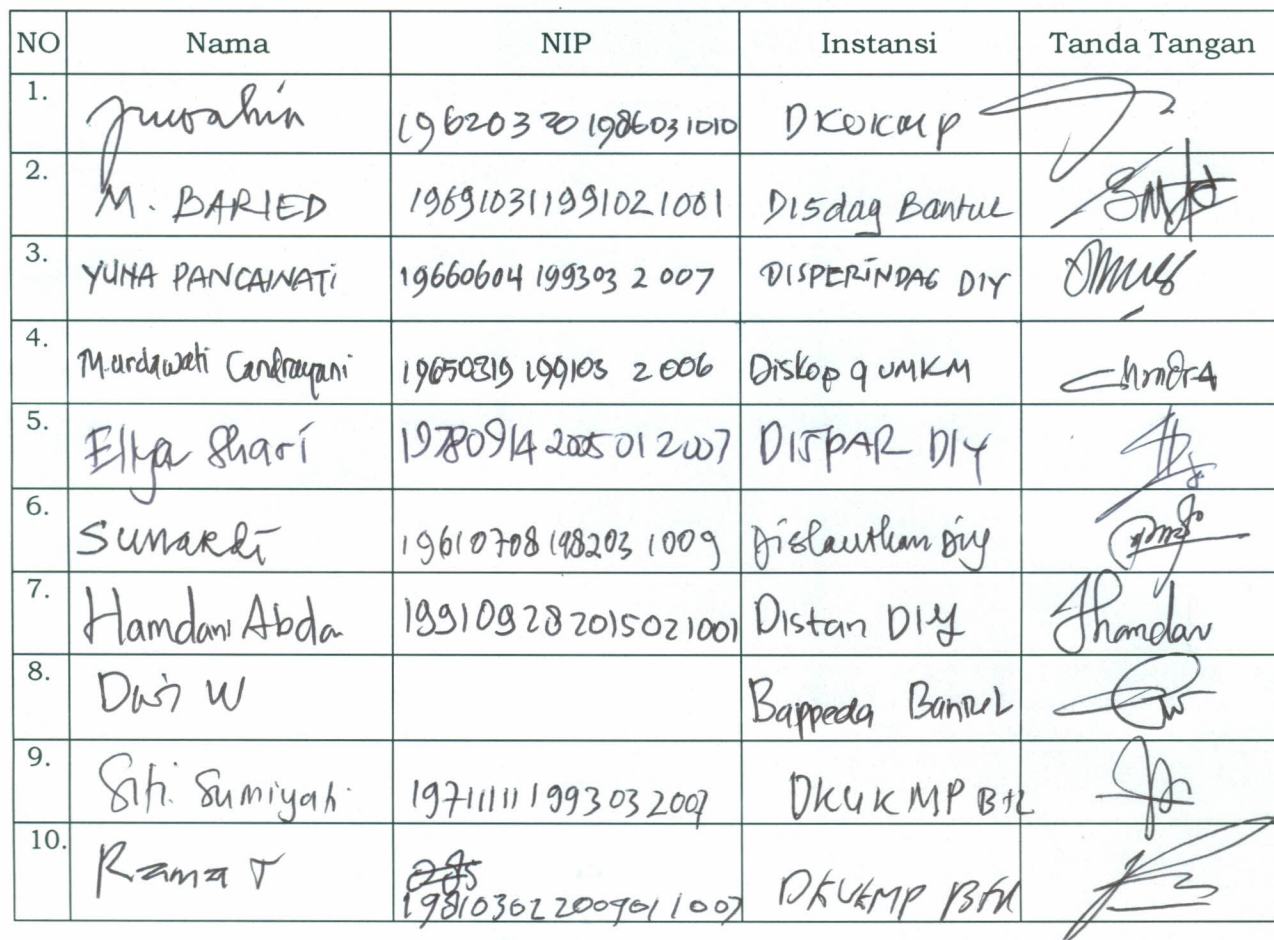 NO Nama NIP Instansi Tanda Tangan
1. Juwahin 19620320 1986031010 DKUKMP
2. M. BARIED 196910311991021001 Disdag Bantul
3. YUNA PANCAWATI 19660604 199303 2 007 DISPERINDAG DIY
4. Murdawati Candrayani 19650319 199103 2 006 Diskop & UMKM
5. Ellya Shari 19780914 2005 01 2 007 DISPAR DIY
6. SUNARDI 19610708 198203 1 009 Dislautkan DIY
7. Hamdani Abda 199109282015021001 Distan DIY
8. Dwi W Bappeda Bantul
9. Siti Sumiyati 19711111 199303 2007 DKUKMP Btl
10. Rama T 198103022009011007 DKUKMP Btl